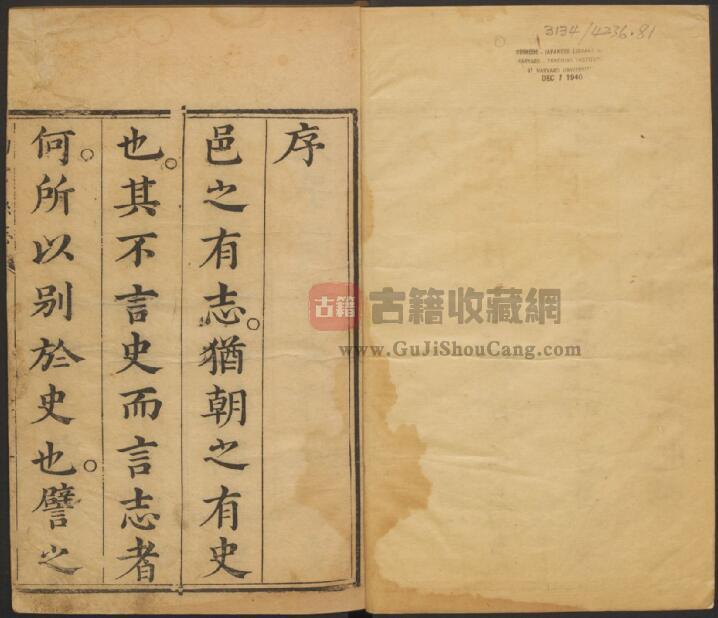 序
邑之有志。猶朝之有史
也。其不言史而言志者
何。所以别於史也。譬之
3134/4236.81
CHINESE - JAPANESE LIBRARY
HARVARD - YENCHING INSTITUTE
AT HARVARD UNIVERSITY
DEC 1 1940
古籍 古籍收藏網
www.GuJiShouCang.com